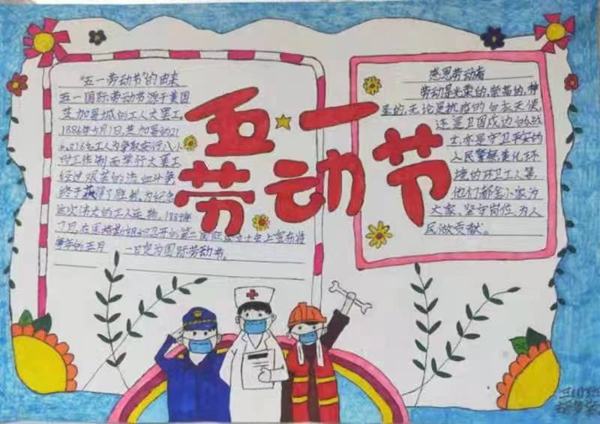 五一
劳动节
"五一劳动节"的由来
五一国际劳动节源于美国
芝加哥城的工人大罢工
1886年5月1日,芝加哥的21
万6千名工人为争取实行八小
时工作制而举行大罢工
经过艰苦的流血斗争
终于获得了胜利,为纪念
这次伟大的工人运动,1889年
7月,在恩格斯组织召开的第二国际成立大会上宣布将
每年的五月 一日定为国际劳动节。
感恩劳动者
劳动是光荣的,崇高的,神
圣的,无论是抗疫的白衣天使,
还是卫国戍边的战
士,亦是守卫平安的
人民警察,美化环
境的环卫工人等,
他们都舍小家为
大家,坚守岗位,为人
民做贡献。